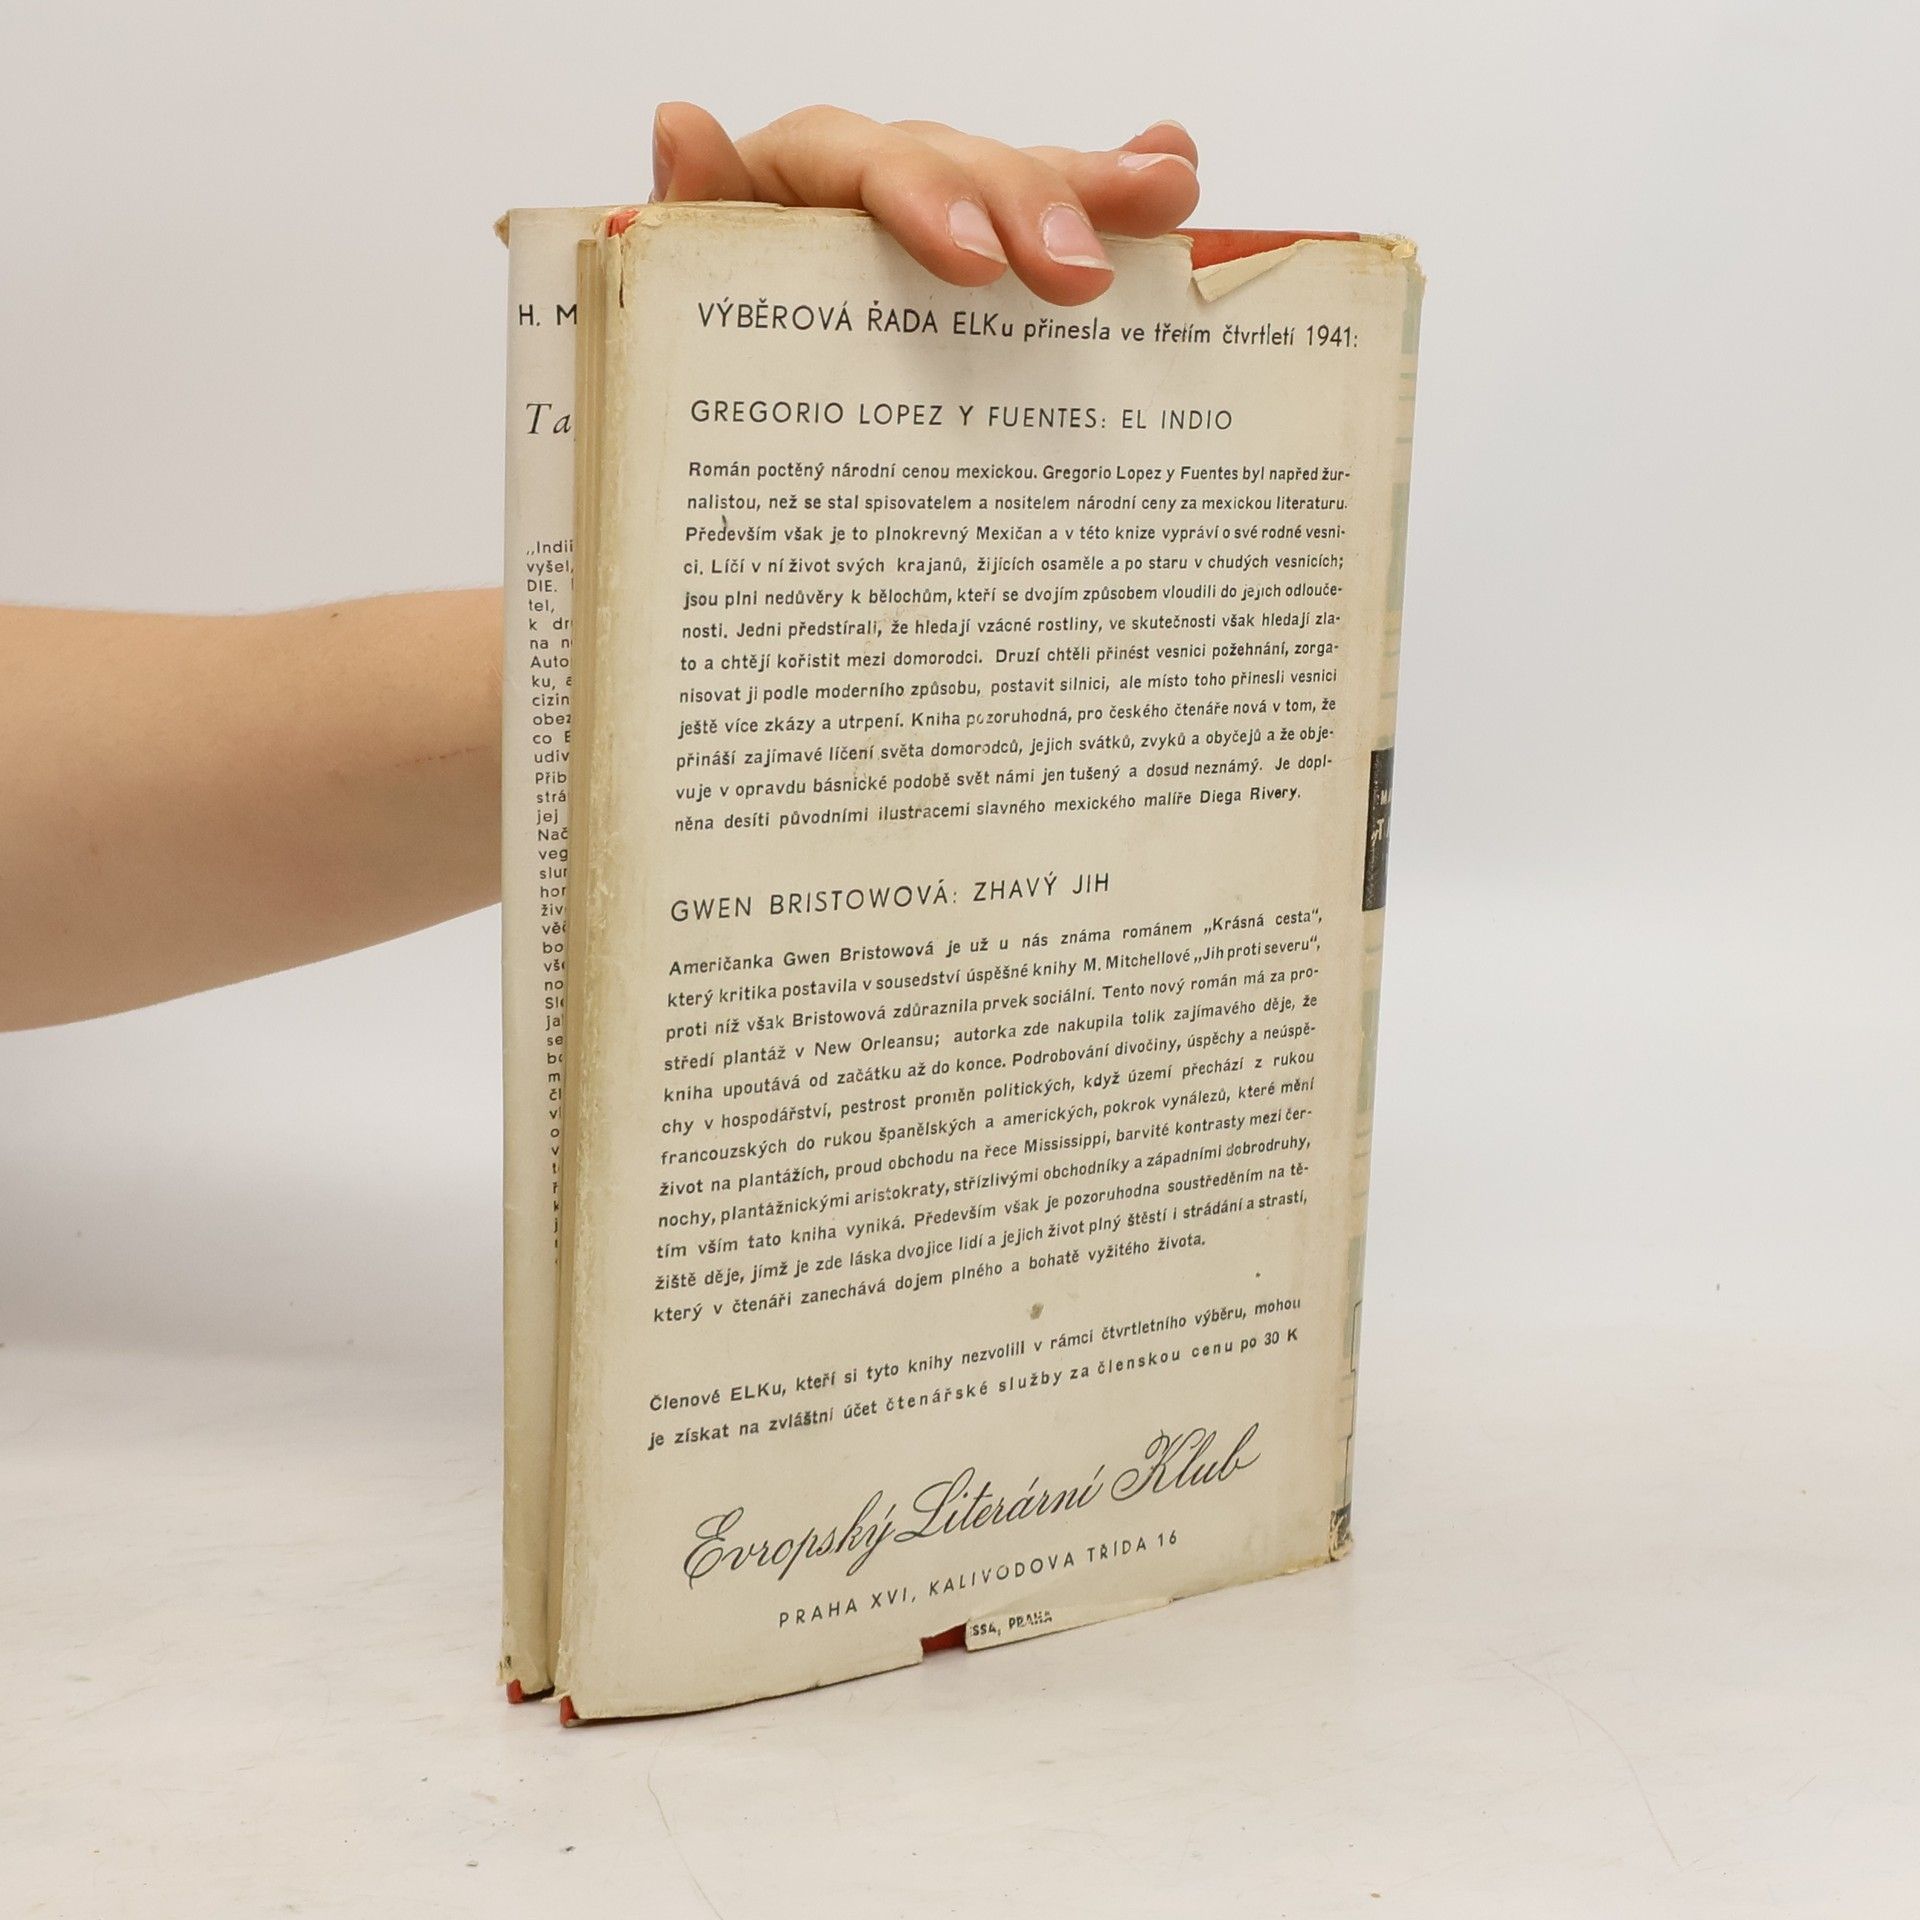 VÝBĚROVÁ ŘADA ELKu přinesla ve třetím čtvrtletí 1941:
GREGORIO LOPEZ Y FUENTES: EL INDIO
Román poctěný národní cenou mexickou. Gregorio Lopez y Fuentes byl napřed žur-
nalistou, než se stal spisovatelem a nositelem národní ceny za mexickou literaturu.
Především však je to plnokrevný Mexičan a v této knize vypráví o své rodné vesni-
ci. Líčí v ní život svých krajanů, žijících osaměle a po staru v chudých vesnicích;
jsou plni nedůvěry k bělochům, kteří se dvojím způsobem vloudili do jejich odlouče-
nosti. Jedni předstírali, že hledají vzácné rostliny, ve skutečnosti však hledají zla-
to a chtějí kořistit mezi domorodci. Druzí chtěli přinést vesnici požehnání, zorga-
nisovat ji podle moderního způsobu, postavit silnici, ale místo toho přinesli vesnici
ještě více zkázy a utrpení. Kniha pozoruhodná, pro českého čtenáře nová v tom, že
přináší zajímavé líčení světa domorodců, jejich svátků, zvyků a obyčejů a že obje-
vuje v opravdu básnické podobě svět námi jen tušený a dosud neznámý. Je dopl-
něna desíti původními ilustracemi slavného mexického malíře Diega Rivery.
GWEN BRISTOWOVÁ: ZHAVÝ JIH
Američanka Gwen Bristowová je už u nás známa románem „Krásná cesta“,
který kritika postavila v sousedství úspěšné knihy M. Mitchellové „Jih proti severu“,
proti níž však Bristowová zdůraznila prvek sociální. Tento nový román má za pro-
středí plantáž v New Orleansu; autorka zde nakupila tolik zajímavého děje, že
kniha upoutává od začátku až do konce. Podrobování divočiny, úspěchy a neúspě-
chy v hospodářství, pestrost proměn politických, když území přechází z rukou
francouzských do rukou španělských a amerických, pokrok vynálezů, které mění
život na plantážích, proud obchodu na řece Mississippi, barvité kontrasty mezi čer-
nochy, plantážnickými aristokraty, střízlivými obchodníky a západními dobrodruhy,
tím vším tato kniha vyniká. Především však je pozoruhodna soustředěním na tě-
žiště děje, jímž je zde láska dvojice lidí a jejich život plný štěstí i strádání a strastí,
který v čtenáři zanechává dojem plného a bohatě vyžitého života.
Členové ELKu, kteří si tyto knihy nezvolili v rámci čtvrtletního výběru, mohou
je získat na zvláštní účet čtenářské služby za členskou cenu po 30 K
Evropský Literární Klub
PRAHA XVI, KALIVODOVA TŘÍDA 16
SSA, PRAHA
H. M
Ta
„Indii
vyšel,
DIE.
tel,
k dr
na n
Auto
ku, a
cizin
obez
co E
udiv
Přib
strá
jej
Nač
veg
slun
hor
živ